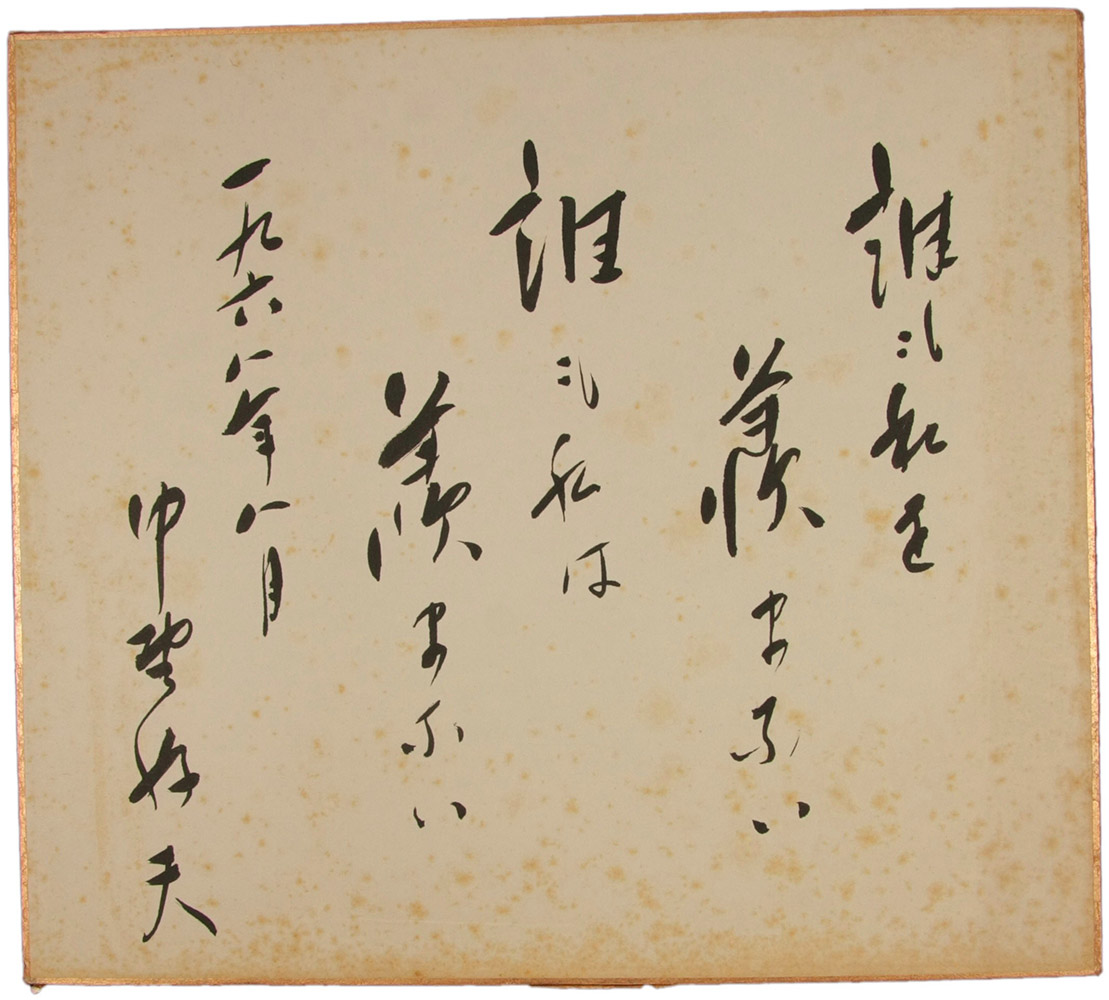 誰も私を
羨まない
誰も私は
羨まない
一九六八年八月
中野好夫